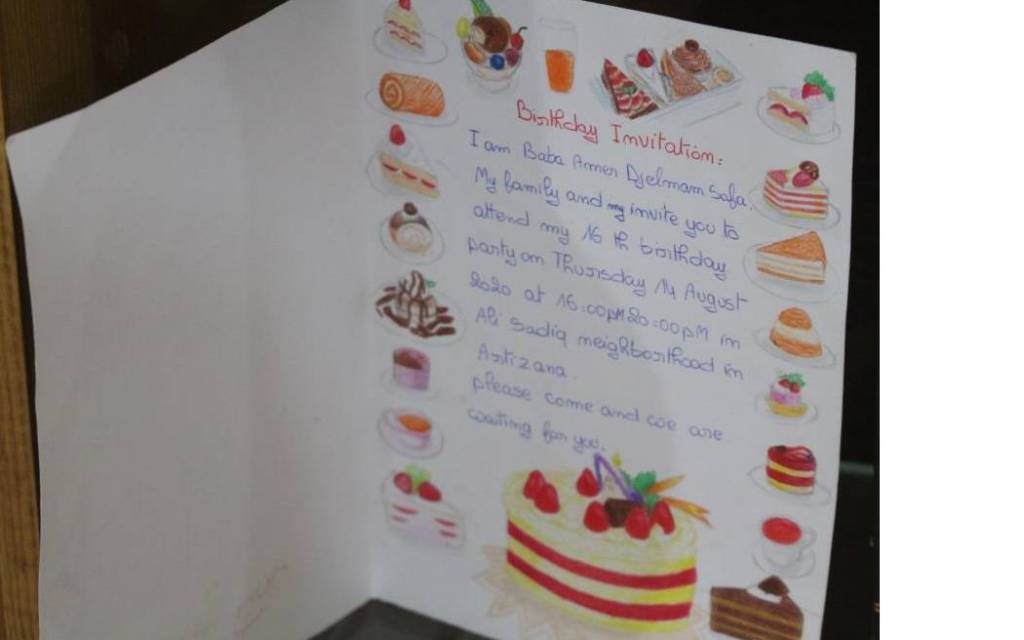 Birthday Invitation:
I am Baba Ameur Djelmam Safa.
My family and my invite you to
attend my 16 th birthday
party on Thursday 14 August
2020 at 16:00pM 20:00pM in
Ali Sadiq neighborhood in
Artizana.
please come and we are
waiting for you.